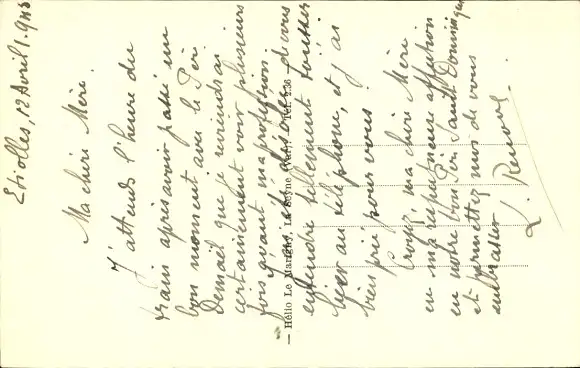 Etiolles, 12 Avril 1945
Ma chère Mère.
J'attends l'heure du
train après avoir passé un
bon moment avec le Père
que je reviendrai
certainement voir plusieurs
fois avant ma profession.
J'ai été de vous
entendre tellement
hier au téléphone, et j'ai
bien prié pour vous.
Croyez, ma chère Mère
en ma respectueuse affection
en notre bon Père Saint Dominique
et permettez moi de vous
embrasser
— Hélio Le Marigny, La Seyne (Var). Tél. 2.36 —